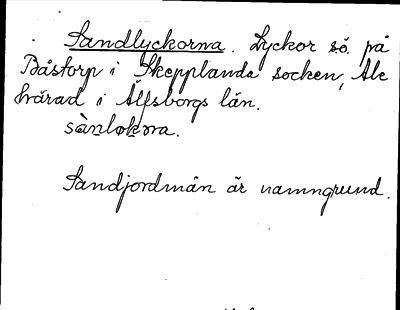 Sandlyckorna. Lyckor sö. på
Båstorp i Skepplanda socken, Ale
härad i Älfsborgs län.
sànlokɷra.
Sandjordmån är namngrund.